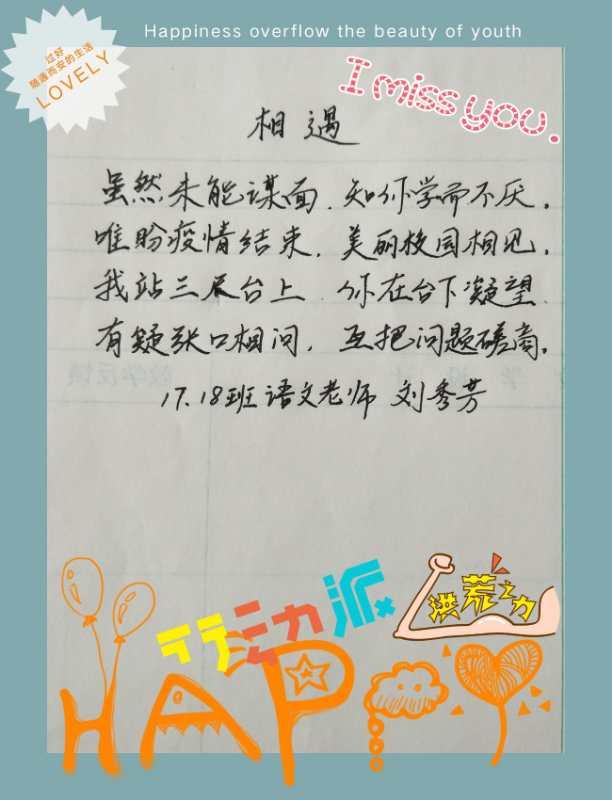 Happiness overflow the beauty of youth
过好
随遇而安的生活
LOVELY
I miss you.
相遇
虽然未能谋面，知你学而不厌。
唯盼疫情结束，美丽校园相见。
我站三尺台上，你在台下凝望，
有疑张口相问，互把问题磋商。
17.18班语文老师 刘秀芳
行动派
洪荒之力
HAPPY